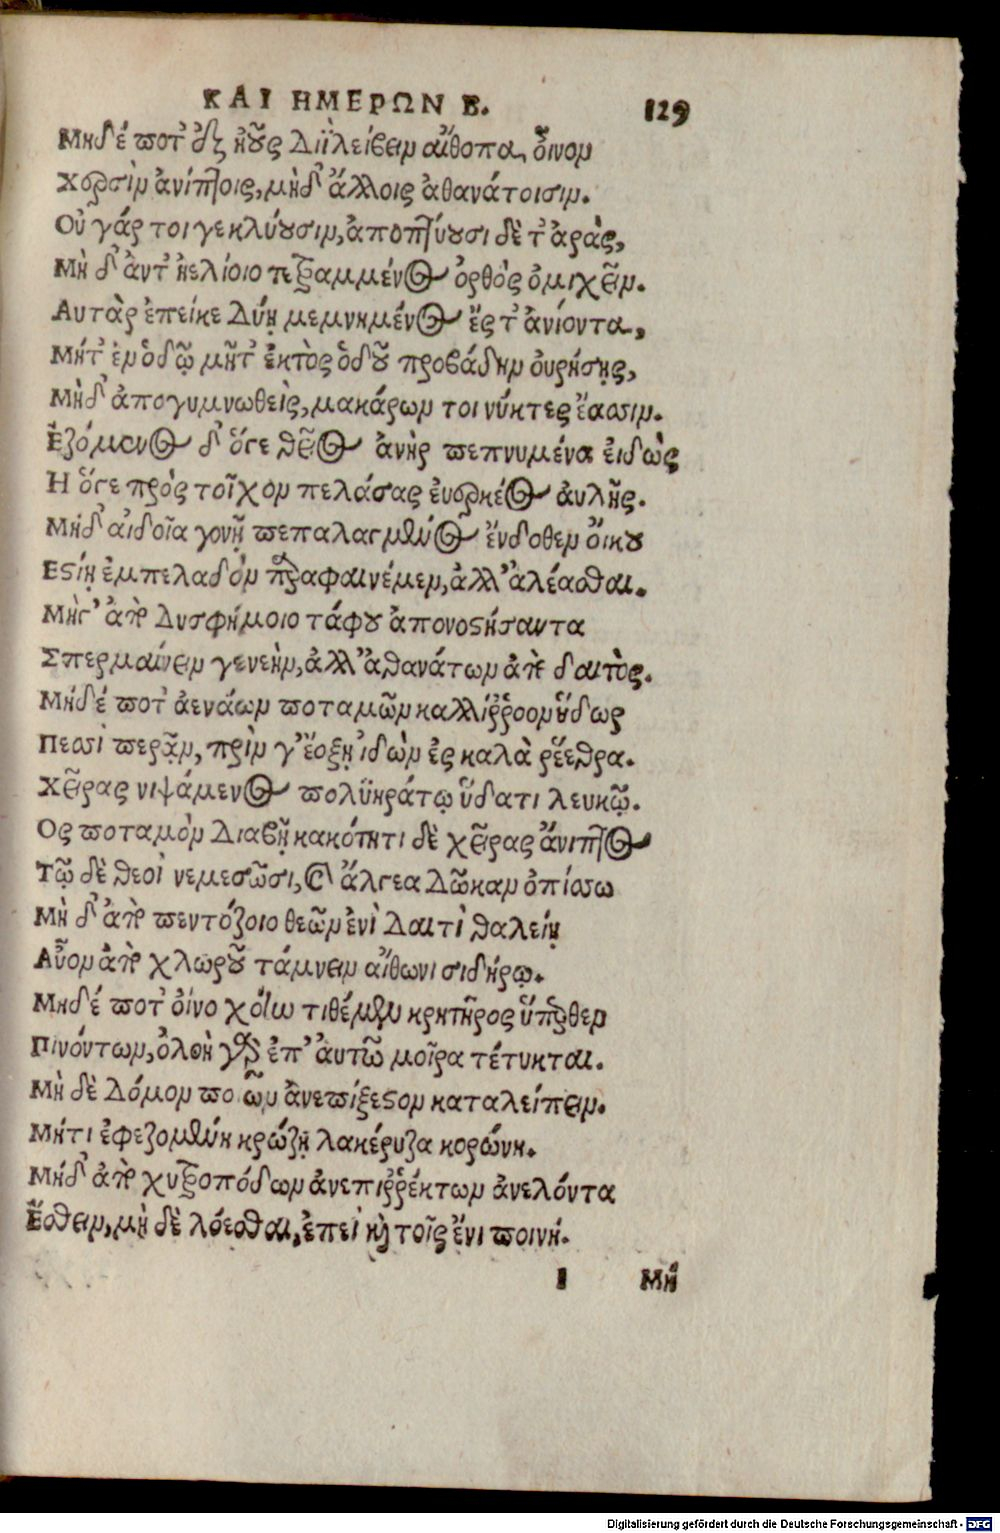 ΚΑΙ ΗΜΕΡΩΝ Β. 129
Μηδέ ποτ' ἐξ ἠοῦς Διῒ λείβειν αἴθοπα οἶνον
Χερσὶν ἀνίπτοις, μὴδ' ἄλλοις ἀθανάτοισιν.
Οὐ γάρ τοι γε κλύουσιν, ἀποπτύουσι δὲ τ' ἀρὰς,
Μὴ δ' ἀντ' ἠελίοιο τετραμμένος ὀρθὸς ὀμιχεῖν.
Αυτὰρ ἐπεί κε Δύῃ μεμνημένος ἔς τ' ἀνίοντα,
Μήτ' ἐν ὁδῷ μῆτ' ἐκτὸς ὁδοῦ προβάδην ὀυρήσῃς,
Μὴδ' ἀπογυμνωθεὶς, μακάρων τοι νύκτες ἔασιν.
Ἑζόμενος δ' ὅγε θεῖος ἀνὴρ πεπνυμένα εἰδὼς
Η ὅγε πρὸς τοῖχον πελάσας ἐυερκέος ἀυλῆς.
Μήδ' αἰδοῖα γονῇ πεπαλαγμένος ἔνδοθεν ὄικου
Εστίῃ ἐμπελαδὸν παραφαινέμεν, ἀλλ' ἀλέασθαι.
Μὴδ' ἀπὸ Δυσφήμοιο τάφου ἀπονοστήσαντα
Σπερμαίνειν γενεὴν, ἀλλ' ἀθανάτων ἀπὸ δαιτὸς.
Μήδέ ποτ' ἀενάων ποταμῶν καλλίῤῥοον ὕδωρ
Ποσὶ περᾷν, πρὶν γ' ἔυξῃ ἰδὼν ἐς καλὰ ῥέεθρα.
Χεῖρας νιψάμενος πολϋηράτῳ ὕδατι λευκῷ.
Ος ποταμὸν Διαβῇ κακότητι δὲ χεῖρας ἄνιπτος
Τῷ δὲ θεοὶ νεμεσῶσι, καὶ ἄλγεα Δῶκαν ὀπίσσω
Μὴ δ' ἀπὸ πεντόζοιο θεῶν ἐνὶ Δαιτὶ θαλείῃ
Αὖον ἀπὸ χλωροῦ τάμνειν αἴθωνι σιδήρῳ.
Μηδέ ποτ' οἰνο χόην τιθέμεν κρητῆρος ὕπερθεν
Πινόντων, ὀλοὴ γὰρ ἐπ' ἀυτῶ μοῖρα τέτυκται.
Μὴ δὲ Δόμον ποιῶν ἀνεπίξεστον καταλείπειν.
Μήτι ἐφεζομένη κρώζῃ λακέρυζα κορώνη.
Μήδ' ἀπὸ χυτροπόδων ἀνεπιῤῥέκτων ἀνελόντα
Ἔσθειν, μὴ δὲ λόεσθαι, ἐπεὶ καὶ τοῖς ἔνι ποινή.
I Μὴ
Digitalisierung gefördert durch die Deutsche Forschungsgemeinschaft - DFG